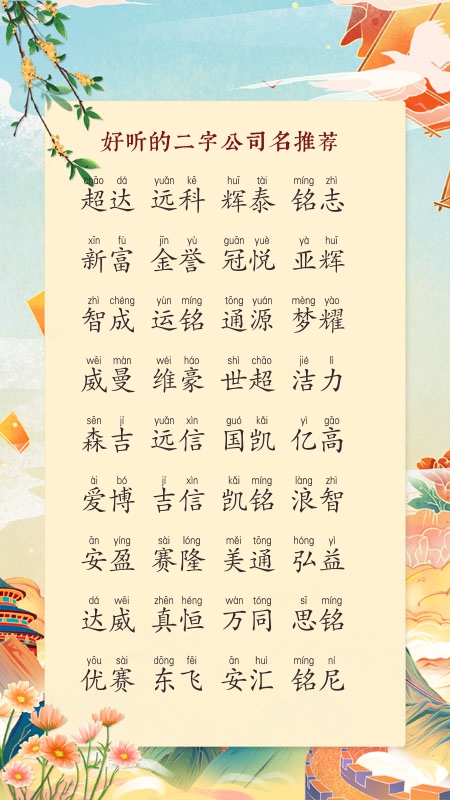 好听的二字公司名推荐
chāo dá yuǎn kē huī tài míng zhì
超达 远科 辉泰 铭志
xīn fù jīn yù guān yuè yà huī
新富 金誉 冠悦 亚辉
zhì chéng yùn míng tōng yuán mèng yào
智成 运铭 通源 梦耀
wēi màn wéi háo shì chāo jié lì
威曼 维豪 世超 洁力
sēn jí yuǎn xìn guó kǎi yì gāo
森吉 远信 国凯 亿高
ài bó jí xìn kǎi míng làng zhì
爱博 吉信 凯铭 浪智
ān yíng sài lóng měi tōng hóng yì
安盈 赛隆 美通 弘益
dá wēi zhēn héng wàn tóng sī míng
达威 真恒 万同 思铭
yōu sài dōng fēi ān huì míng ní
优赛 东飞 安汇 铭尼